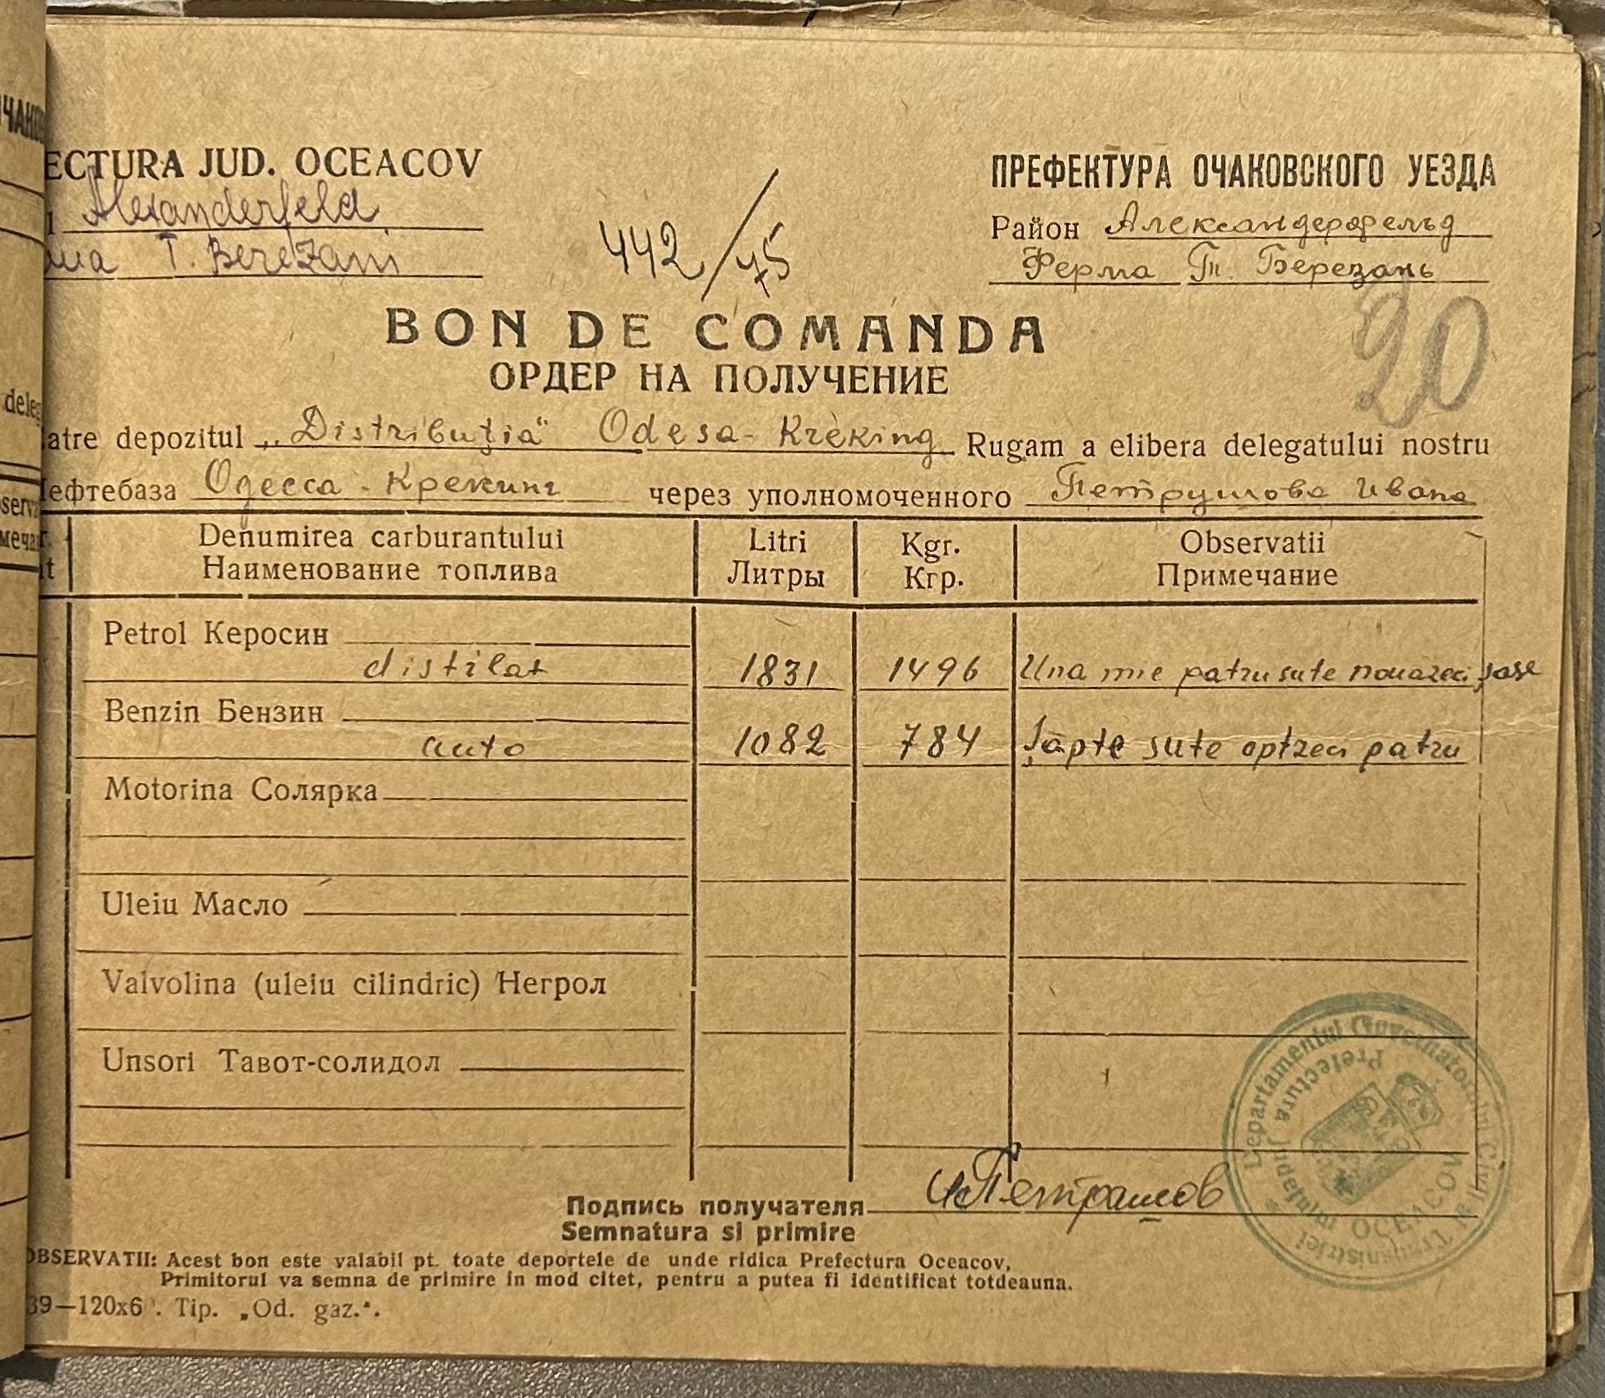 ЕCTURA JUD. OCEACOV
ПРЕФЕКТУРА ОЧАКОВСКОГО УЕЗДА
Alexanderfeld
Район Александерфельд
T. Berezani
Ферма Т. Березань
442/75
20
BON DE COMANDA
ОРДЕР НА ПОЛУЧЕНИЕ
atre depozitul „Distribuţia" Odesa-Kreking Rugam a elibera delegatului nostru
ефтебаза Одесса-Крекинг через уполномоченного Ивана
Denumirea carburantului Litri Kgr. Observatii
Наименование топлива Литры Кгр. Примечание
Petrol Керосин
distilat 1831 1496 Una mie patru sute nouazeci şase
Benzin Бензин
auto 1082 784 Şapte sute optzeci patru
Motorina Солярка
Uleiu Масло
Valvolina (uleiu cilindric) Негрол
Unsori Тавот-солидол
Departamentul Guvernatorului Civil
Prefectura Judeţului OCEACOV
Подпись получателя
Semnatura si primire
OBSERVATII: Acest bon este valabil pt. toate deportele de unde ridica Prefectura Oceacov,
Primitorul va semna de primire in mod citet, pentru a putea fi identificat totdeauna.
39—120x6 . Tip. „Od. gaz.".